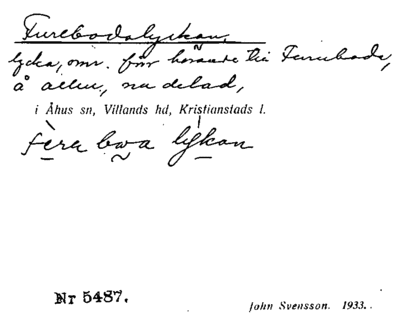 Furebodalyckan,
lycka, omr. förr hörande till Furuboda,
å allm., nu delad,
i Åhus sn, Villands hd, Kristianstads l.
fèra bwa lýkan
Nr 5487.
John Svensson. 1933.